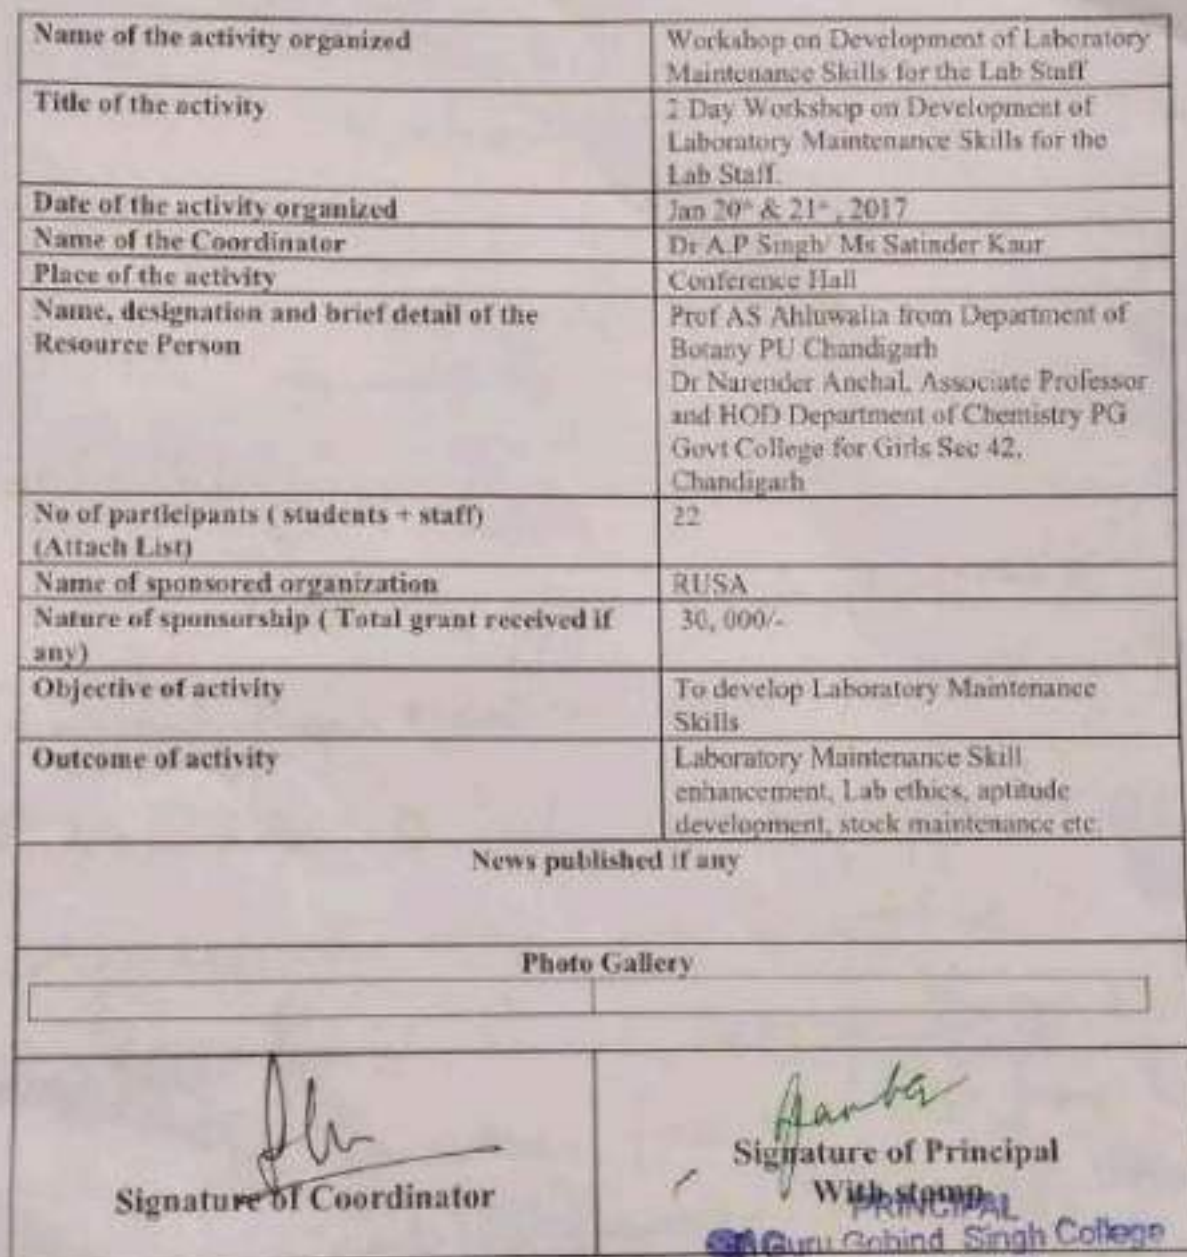 Name of the activity organized
Workshop on Development of Laboratory
Maintenance Skills for the Lab Staff
Title of the activity
2 Day Workshop on Development of
Laboratory Maintenance Skills for the
Lab Staff.
Date of the activity organized
Jan 20th & 21st , 2017
Name of the Coordinator
Dr A.P Singh/ Ms Satinder Kaur
Place of the activity
Conference Hall
Name, designation and brief detail of the
Resource Person
Prof AS Ahluwalia from Department of
Botany PU Chandigarh
Dr Narender Anchal, Associate Professor
and HOD Department of Chemistry PG
Govt College for Girls Sec 42,
Chandigarh
No of participants ( students + staff)
(Attach List)
22
Name of sponsored organization
RUSA
Nature of sponsorship ( Total grant received if
any)
30, 000/-
Objective of activity
To develop Laboratory Maintenance
Skills
Outcome of activity
Laboratory Maintenance Skill
enhancement, Lab ethics, aptitude
development, stock maintenance etc
News published if any
Photo Gallery
Signature of Coordinator
Signature of Principal
With stamp
PRINCIPAL
Guru Gobind Singh College